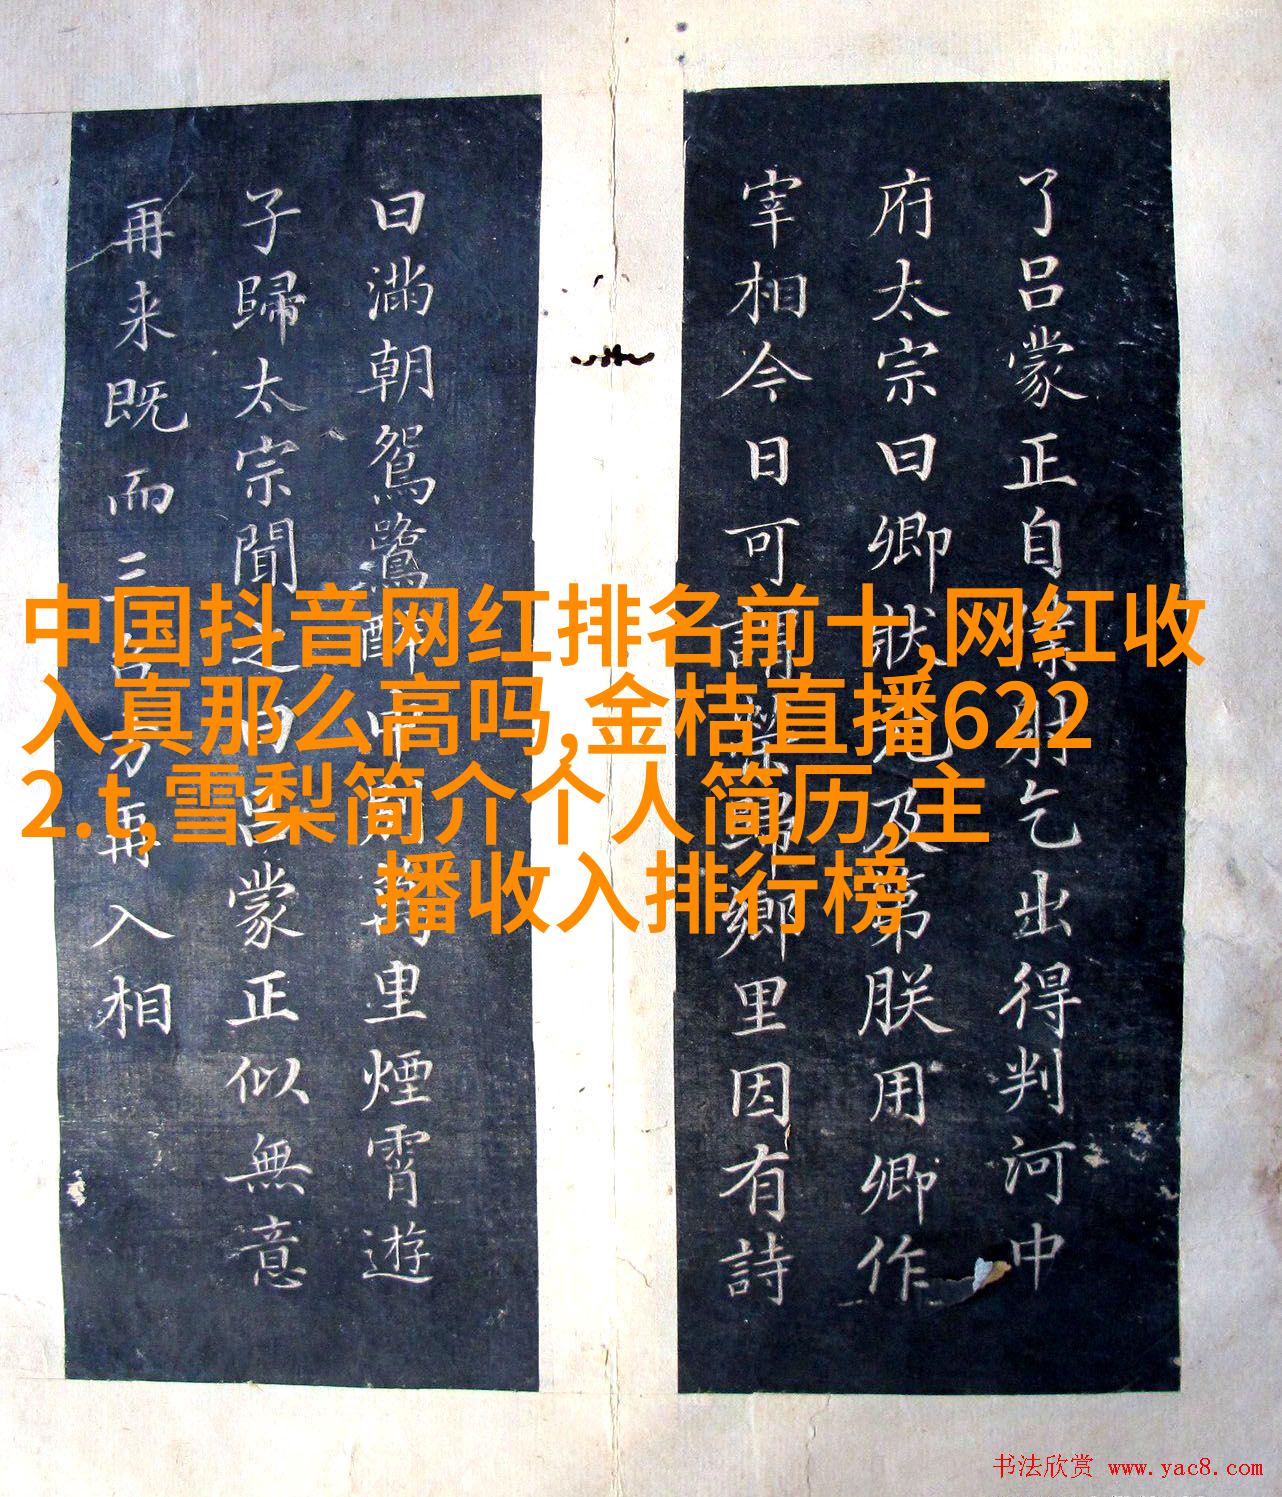 中国抖音网红排名前十,网红收
入真那么高吗,金桔直播622
2.t,雪梨简介个人简历,主
播收入排行榜
了吕蒙正自射乞出得判河中
府太宗曰卿狀元及第朕用卿作
宰相今日可謂榮歸鄉里因有詩
曰滿朝鴛鷺醉中別萬里煙霄遊
子歸太宗聞之曰吕蒙正似無意
再来既而三再入相
书法欣赏 www.yac8.com